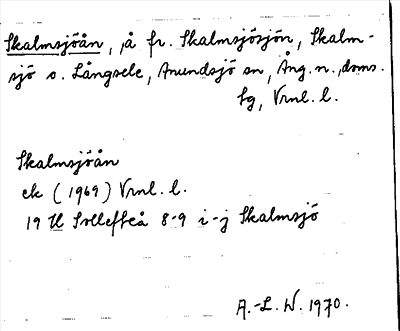 Skalmsjöån, å fr. Skalmsjösjön, Skalm-
sjö o. Långsele, Anundsjö sn, Ång. n., doms.
fg, Vrnl. l.
Skalmsjöån
ek (1969) Vrnl. l.
19 H Sollefteå 8-9 i-j Skalmsjö
A.-L. W. 1970.